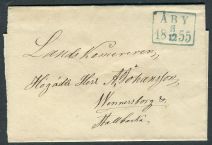 ÅBY
8
12
1855
Landskamreraren,
Högädle Herr A. Johansson,
Wennersborg &